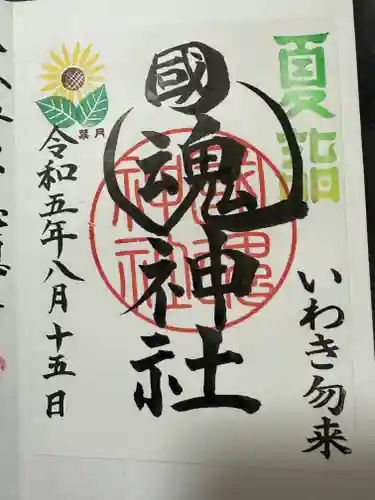 夏詣
いわき勿来
國魂神社
國魂神社
葉月
令和五年八月十五日